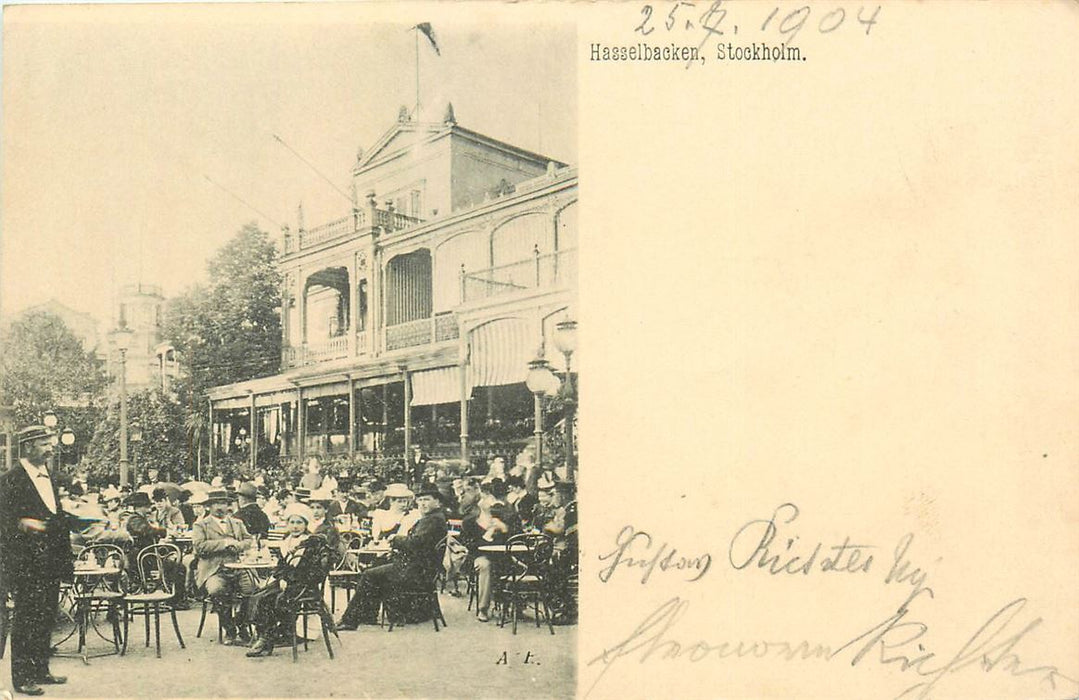 25.7.1904
Hasselbacken, Stockholm.
Gustav Richter
Richter
A. E.